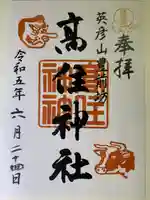 奉拝
英彦山豊前坊
高住神社
令和五年六月二十四日